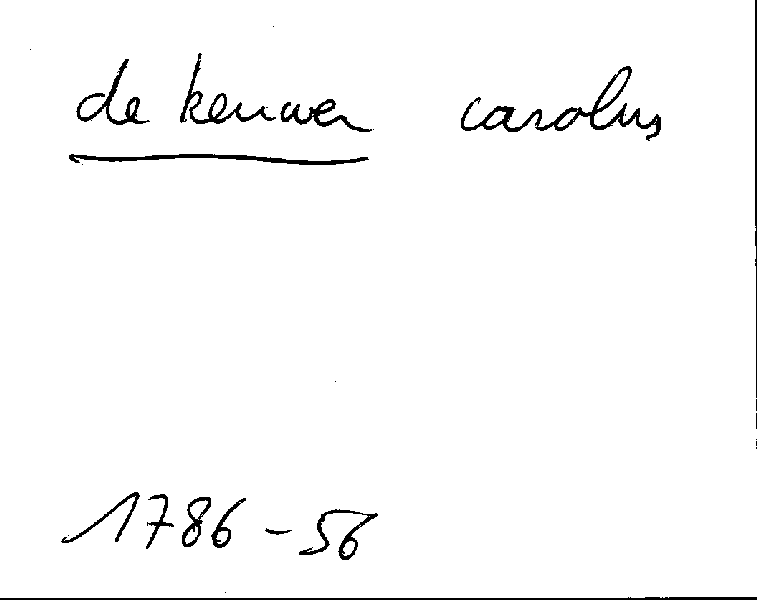 de keuwer carolus
1786-56